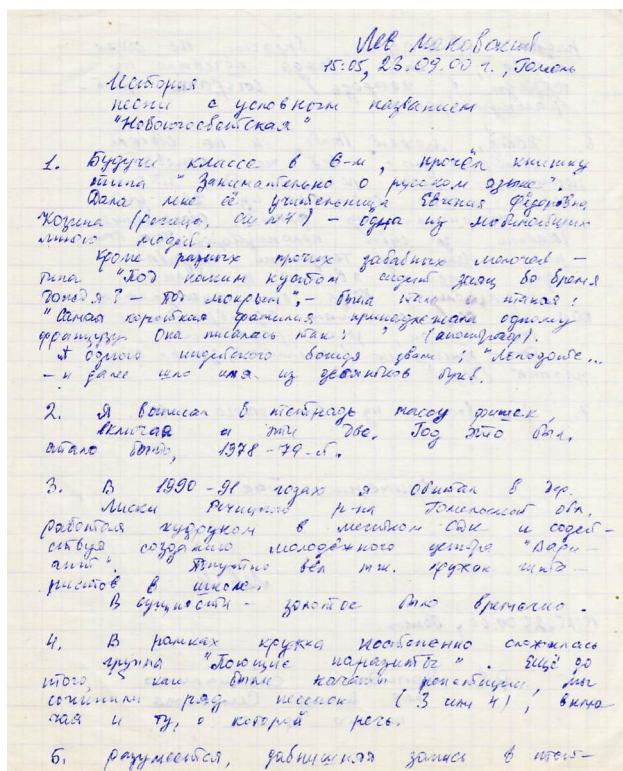 Лев Маковский
15:05, 23.09.00 г., Гомель
История
песни с условным названием
"Новоюгославская"
1. Будучи классе в 6-м, прочёл книжку
типа "Занимательно о русском языке".
Дала мне её учительница Евгения Фёдоровна
Козина (Речица, СШ №4) — одна из
много людей.
Кроме разных прочих забавных мелочей —
типа "Под каким кустом сидит заяц во время
дождя? — Под мокрым", — была там и такая:
"Самая короткая фамилия принадлежала одному
французу. Она писалась так: ' (апостроф).
А одного индейского вождя звали: "
— и далее шло имя из десятков букв.
2. Я выписал в тетрадь массу фишек,
включая и эти две. Год это был,
стало быть, 1978-79-й.
3. В 1990-91 годах я обитал в дер.
Лиски Речицкого р-на Гомельской обл.,
работая худруком в местном СДК и содей-
ствуя созданию молодёжного центра "Вари-
ант". Попутно вёл тж. кружок гита-
ристов в школе.
В сущности — золотое было времечко.
4. В рамках кружка постепенно сложилась
группа "Поющие паразиты". Ещё до
того, как были начаты репетиции, мы
сочинили ряд песенок (3 или 4), вклю
чая и ту, о которой речь.
5. Разумеется, давнишняя запись в тет-